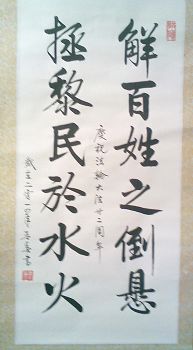 解百姓之倒懸
拯黎民於水火
慶祝法輪大法廿二周年